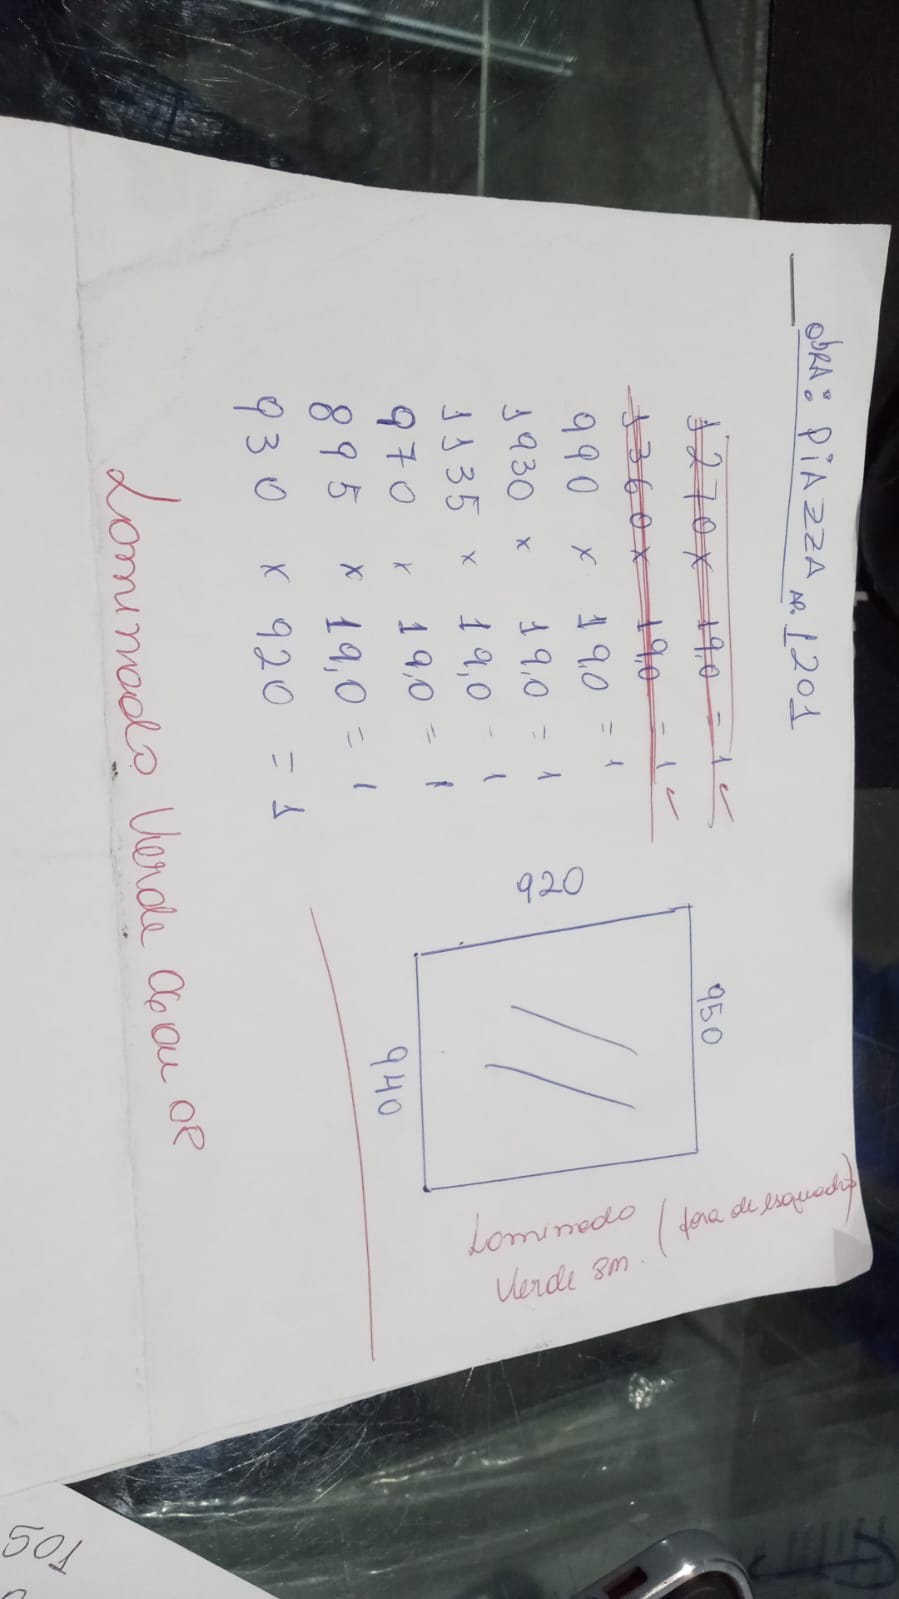 OBRA: PIAZZA AP. 1201
1270 x 19,0 = 1 ✓
1360 x 19,0 = 1 ✓
990 x 19,0 = 1
1930 x 19,0 = 1
1135 x 19,0 = 1
970 x 19,0 = 1
895 x 19,0 = 1
930 x 920 = 1
950
920
940
(fora de esquadro)
Laminado
Verde 8m.
Laminado Verde
501